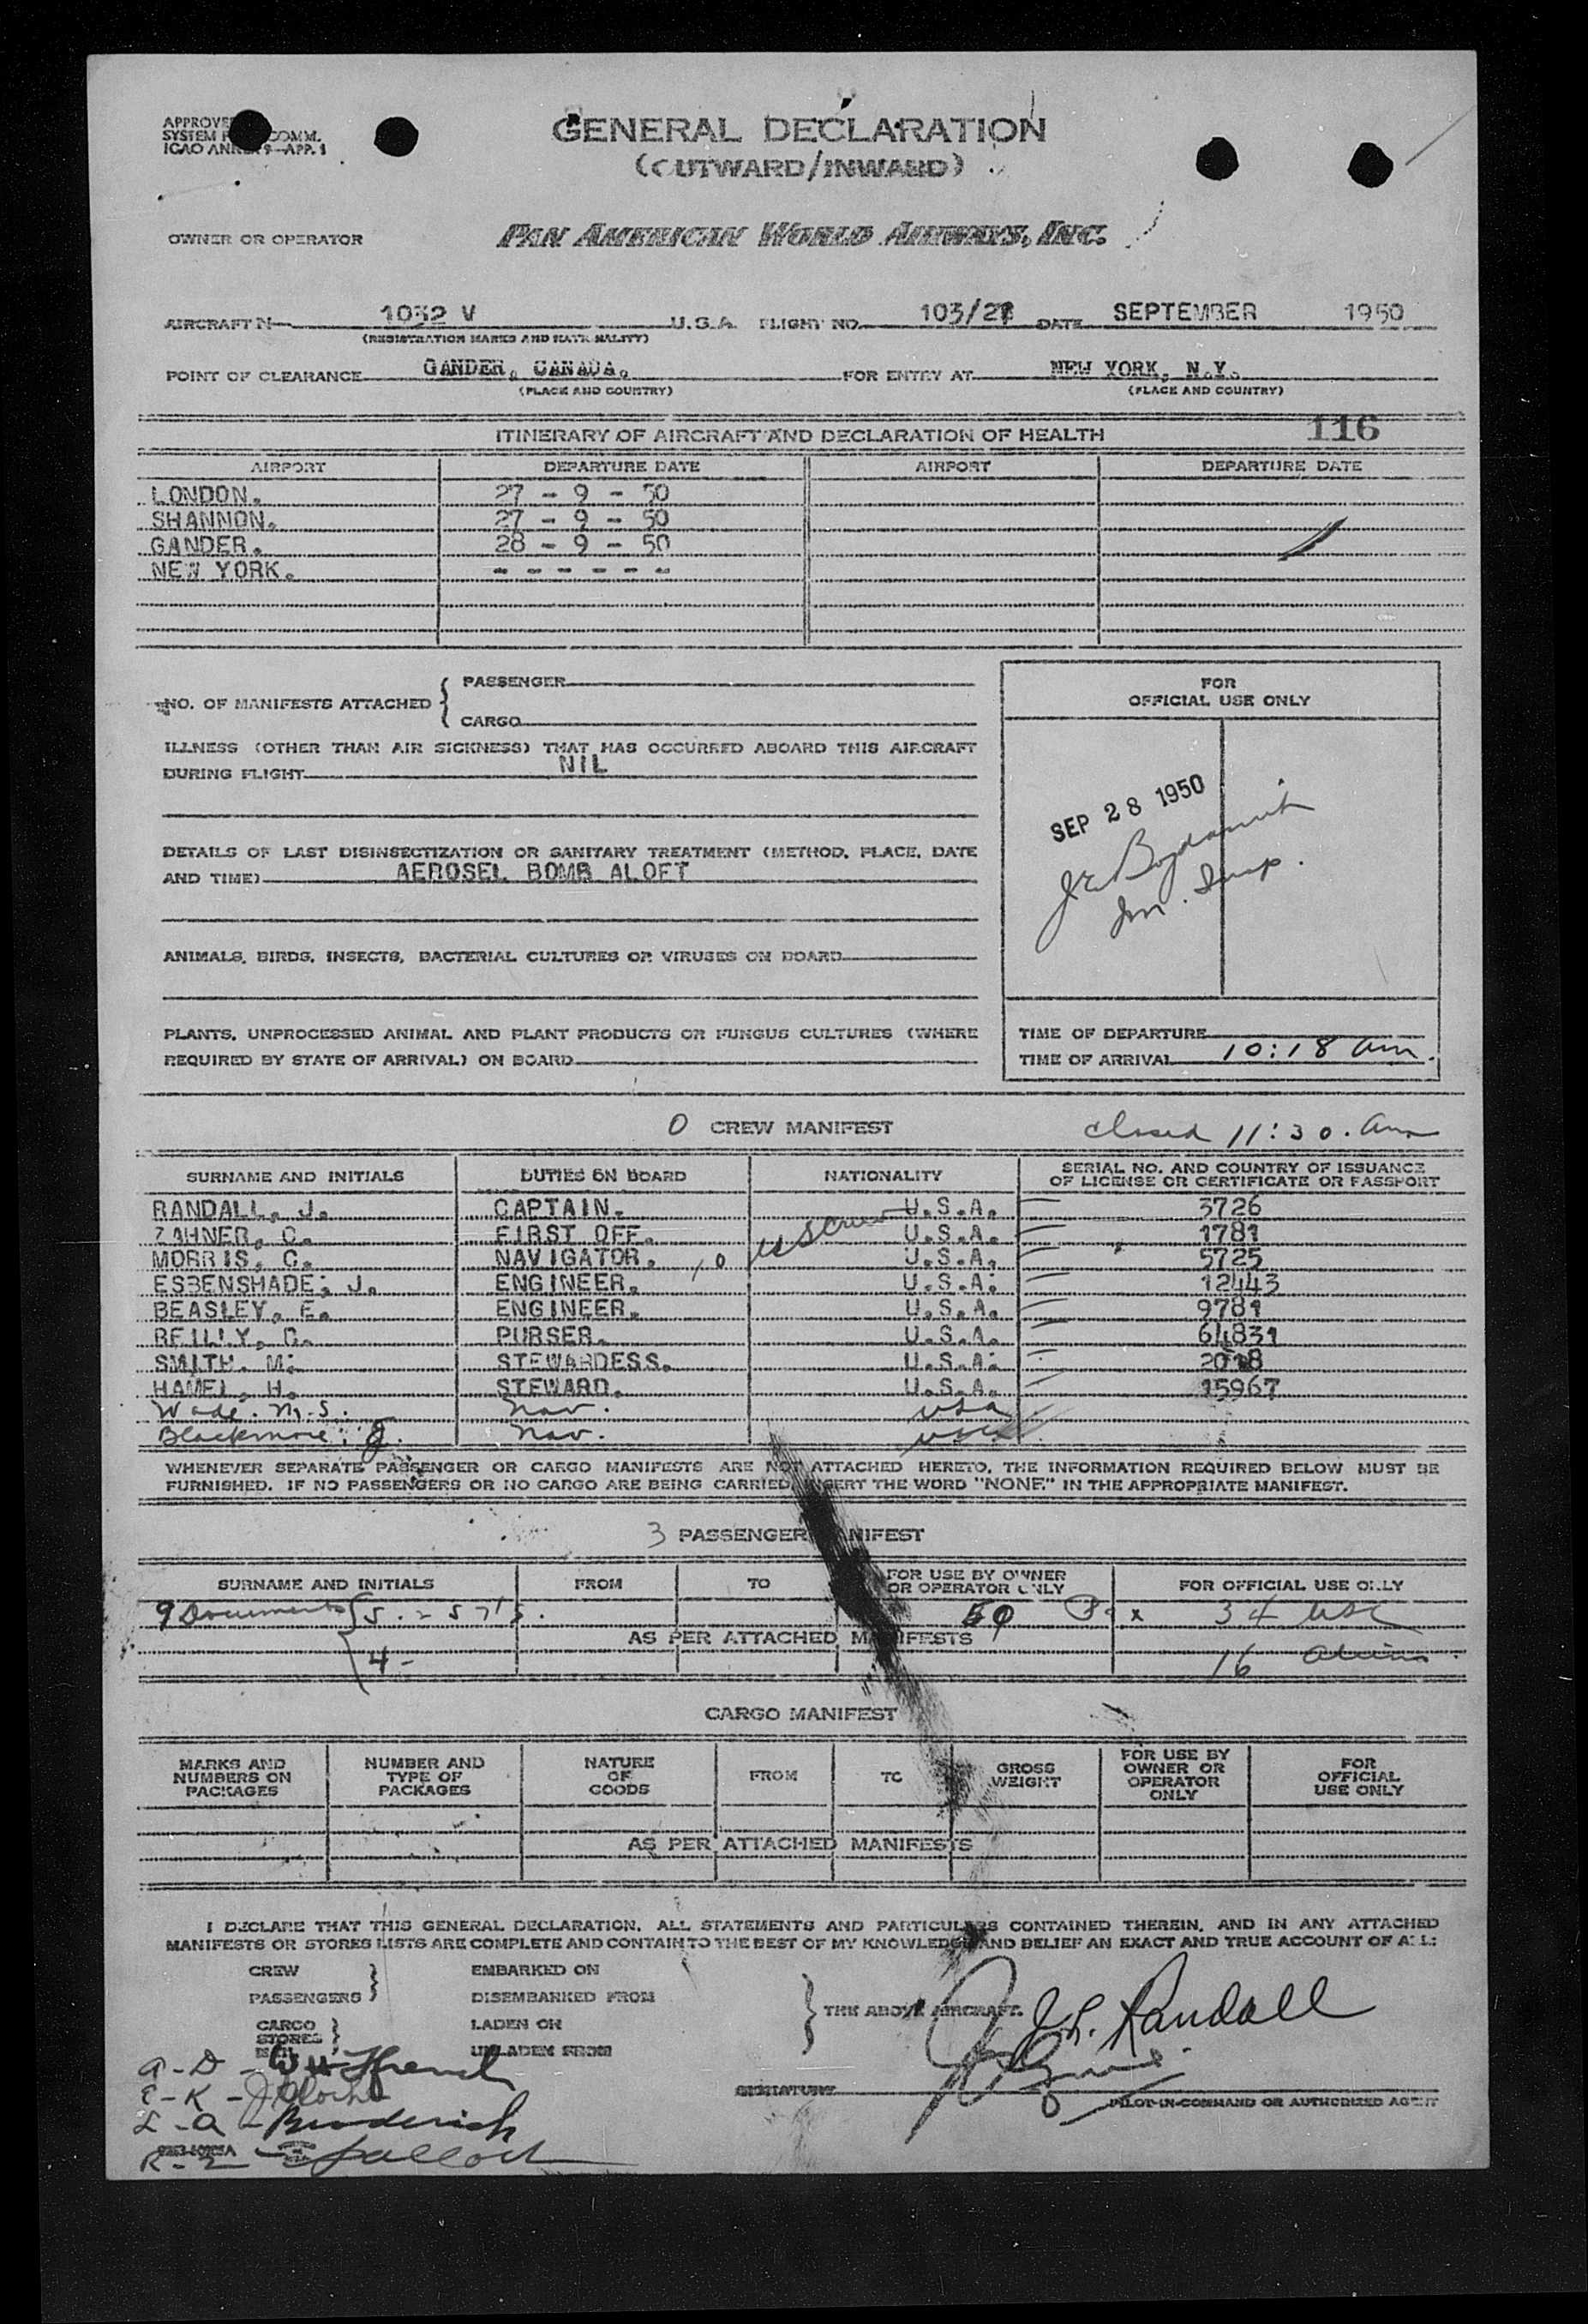 GENERAL DECLARATION
(OUTWARD/INWARD)
OWNER OR OPERATOR PAN AMERICAN WORLD AIRWAYS, INC.
AIRCRAFT N 1032 V U.S.A. FLIGHT NO. 103/27 DATE SEPTEMBER 1950
(REGISTRATION MARKS AND NATIONALITY)
POINT OF CLEARANCE GANDER, CANADA. FOR ENTRY AT NEW YORK, N.Y.
(PLACE AND COUNTRY) (PLACE AND COUNTRY)
116
ITINERARY OF AIRCRAFT AND DECLARATION OF HEALTH
AIRPORT DEPARTURE DATE AIRPORT DEPARTURE DATE
LONDON. 27 - 9 - 50
SHANNON. 27 - 9 - 50
GANDER. 28 - 9 - 50
NEW YORK. - - - - - -
NO. OF MANIFESTS ATTACHED { PASSENGER
CARGO
ILLNESS (OTHER THAN AIR SICKNESS) THAT HAS OCCURRED ABOARD THIS AIRCRAFT
DURING FLIGHT NIL
DETAILS OF LAST DISINSECTIZATION OR SANITARY TREATMENT (METHOD, PLACE, DATE
AND TIME) AEROSEL BOMB ALOFT
ANIMALS, BIRDS, INSECTS, BACTERIAL CULTURES OR VIRUSES ON BOARD
PLANTS, UNPROCESSED ANIMAL AND PLANT PRODUCTS OR FUNGUS CULTURES (WHERE
REQUIRED BY STATE OF ARRIVAL) ON BOARD
FOR
OFFICIAL USE ONLY
SEP 28 1950
Im. Insp.
TIME OF DEPARTURE
TIME OF ARRIVAL 10:18 am.
0 CREW MANIFEST closed 11:30. am
SURNAME AND INITIALS DUTIES ON BOARD NATIONALITY SERIAL NO. AND COUNTRY OF ISSUANCE
OF LICENSE OR CERTIFICATE OR PASSPORT
RANDALL, J. CAPTAIN. U.S.A. 3726
ZAHNER, C. FIRST OFF. U.S.A. 1781
MORRIS, C. NAVIGATOR. U.S.A. 5725
10 US crew
ESBENSHADE, J. ENGINEER. U.S.A. 12443
BEASLEY, E. ENGINEER. U.S.A. 9781
REILLY, C. PURSER. U.S.A. 64831
SMITH. M. STEWARDESS. U.S.A.
HAMEL, H. STEWARD. U.S.A. 15967
Wade. M.S. Nav. USA
Blackmore, J. Nav. USA
WHENEVER SEPARATE PASSENGER OR CARGO MANIFESTS ARE NOT ATTACHED HERETO, THE INFORMATION REQUIRED BELOW MUST BE
FURNISHED. IF NO PASSENGERS OR NO CARGO ARE BEING CARRIED, INSERT THE WORD "NONE" IN THE APPROPRIATE MANIFEST.
3 PASSENGER MANIFEST
SURNAME AND INITIALS FROM TO FOR USE BY OWNER
OR OPERATOR ONLY FOR OFFICIAL USE ONLY
9 Documents { 5 - 34 USC
AS PER ATTACHED MANIFESTS
4 - 16 aliens
CARGO MANIFEST
MARKS AND
NUMBERS ON
PACKAGES
NUMBER AND
TYPE OF
PACKAGES
NATURE
OF
GOODS
FROM
TO
GROSS
WEIGHT
FOR USE BY
OWNER OR
OPERATOR
ONLY
FOR
OFFICIAL
USE ONLY
AS PER ATTACHED MANIFESTS
I DECLARE THAT THIS GENERAL DECLARATION, ALL STATEMENTS AND PARTICULARS CONTAINED THEREIN, AND IN ANY ATTACHED
MANIFESTS OR STORES LISTS ARE COMPLETE AND CONTAIN TO THE BEST OF MY KNOWLEDGE AND BELIEF AN EXACT AND TRUE ACCOUNT OF ALL:
CREW EMBARKED ON
PASSENGERS } DISEMBARKED FROM
CARGO LADEN ON
STORES } UNLADEN FROM
} THE ABOVE AIRCRAFT.
J.L. Randall
SIGNATURE
PILOT-IN-COMMAND OR AUTHORIZED AGENT
A - D - French
E - K -
L - Q - Broderick